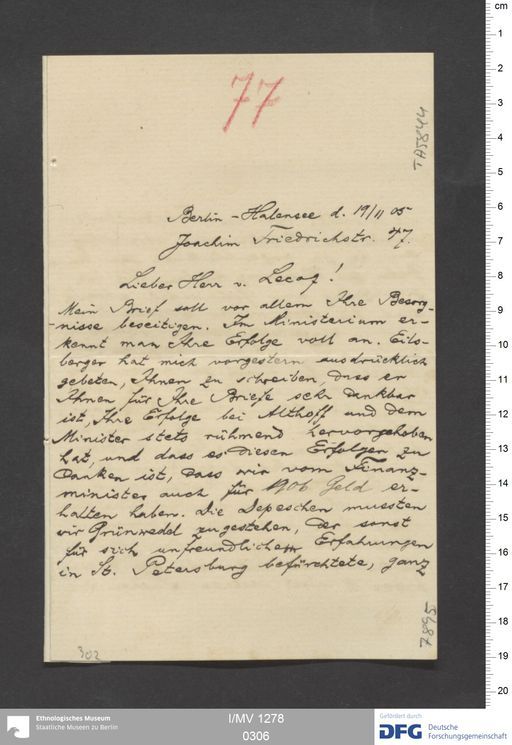 77
TA5844
Berlin-Halensee d. 19/11 05
Joachim Friedrichstr. 47.
Lieber Herr v. Lecoq!
Mein Brief soll vor allem Ihre Besorg-
nisse beseitigen. Im Ministerium er-
kennt man Ihre Erfolge voll an. Eils-
berger hat mich vorgestern ausdrücklich
gebeten, Ihnen zu schreiben, dass er
Ihnen für Ihre Briefe sehr dankbar
ist, Ihre Erfolge bei Althoff und dem
Minister stets rühmend hervorgehoben
hat, und dass es diesen Erfolgen zu
danken ist, dass wir vom Finanz-
minister auch für 1906 Geld er-
halten haben. Die Depeschen mussten
wir Grünwedel zugestehen, der sonst
für sich unfreundlichen Erfahrungen
in St. Petersburg befürchtete, ganz
7895
302
cm
1
2
3
4
5
6
7
8
9
10
11
12
13
14
15
16
17
18
19
20
Ethnologisches Museum
Staatliche Museen zu Berlin
I/MV 1278
0306
Gefördert durch
DFG Deutsche
Forschungsgemeinschaft